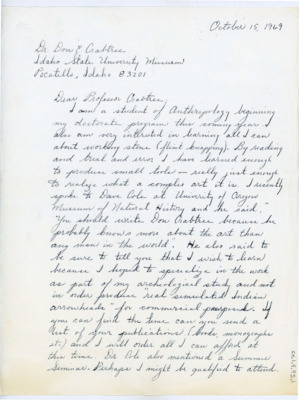 October 15, 1969
Dr. Don E. Crabtree
Idaho State University Museum
Pocatello, Idaho 83201
Dear Professor Crabtree,
I am a student of Anthropology beginning
my doctorate program this coming year. I
also am very interested in learning all I can
about working stone (flint knapping). By reading
and trial and error I have learned enough
to produce small tools – really just enough
to realize what a complex art it is. I recently
spoke to Dave Cole at University of Oregon
Museum of Natural History and he said,
"You should write Don Crabtree because he
probably knows more about the art than
any man in the world". He also said to
be sure to tell you that I wish to learn
because I hoped to specialize in the work
as part of my archeological study and not
in order produce real "simulated Indian
arrowheads" for commercial purposes. If
you can find the time can you send a
list of your publications (books, monographs
etc.) and I will order all I can afford at
this time. Dr. Cole also mentioned a Summer
Seminar. Perhaps I might be qualified to attend.